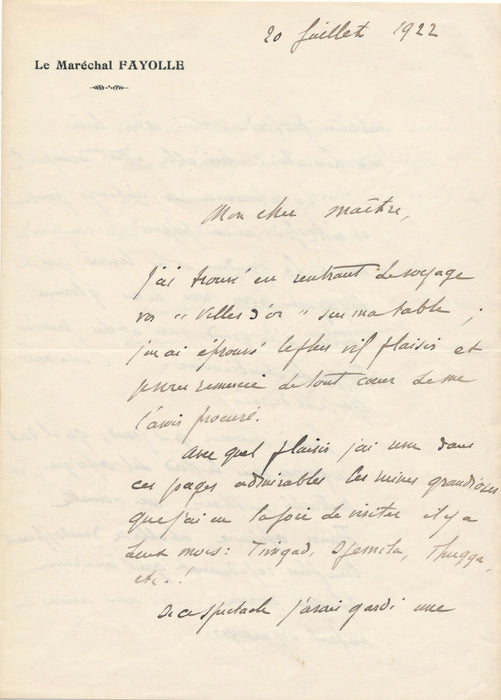 20 Juillet 1922
Le Maréchal FAYOLLE
Mon cher maître,
J'ai trouvé en rentrant de voyage
vos "Villes d'or" sur ma table ;
j'en ai éprouvé le plus vif plaisir et
vous remercie de tout cœur de me
l'avoir procuré.
Avec quel plaisir j'ai revu dans
ces pages admirables les ruines grandioses
que j'ai eu la joie de visiter il y a
deux mois : Timgad, Djemila, Thugga,
etc..!
De ce spectacle j'avais gardé une